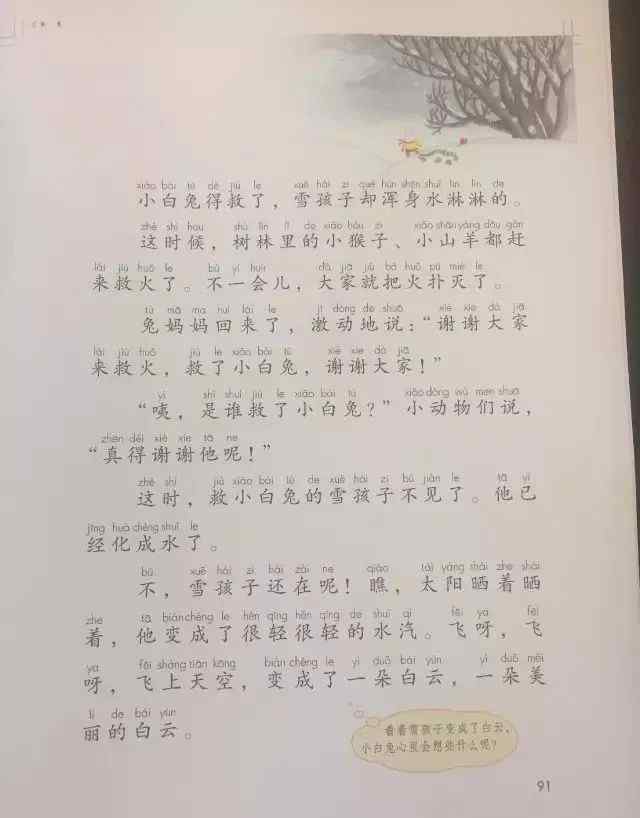 xiǎo bái tù dé jiù le xuě hái zi què hún shēn shuǐ lín lín de
小白兔得救了，雪孩子却浑身水淋淋的。
zhè shí hou shù lín lǐ de xiǎo hóu zi xiǎo shān yáng dōu gǎn
这时候，树林里的小猴子、小山羊都赶
lái jiù huǒ le bù yí huìr dà jiā jiù bǎ huǒ pū miè le
来救火了。不一会儿，大家就把火扑灭了。
tù mā ma huí lái le jī dòng de shuō xiè xie dà jiā
兔妈妈回来了，激动地说：“谢谢大家
lái jiù huǒ jiù le xiǎo bái tù xiè xie dà jiā
来救火，救了小白兔，谢谢大家！”
yí shì shuí jiù le xiǎo bái tù xiǎo dòng wù men shuō
“咦，是谁救了小白兔？”小动物们说，
zhēn děi xiè xie tā ne
“真得谢谢他呢！”
zhè shí jiù xiǎo bái tù de xuě hái zi bú jiàn le tā yǐ
这时，救小白兔的雪孩子不见了。他已
jīng huà chéng shuǐ le
经化成水了。
bù xuě hái zi hái zài ne qiáo tài yáng shài zhe shài
不，雪孩子还在呢！瞧，太阳晒着晒
zhe tā biàn chéng le hěn qīng hěn qīng de shuǐ qì fēi ya fēi
着，他变成了很轻很轻的水汽。飞呀，飞
ya fēi shàng tiān kōng biàn chéng le yì duǒ bái yún yì duǒ měi
呀，飞上天空，变成了一朵白云，一朵美
lì de bái yún
丽的白云。
看着雪孩子变成了白云，
小白兔心里会想些什么呢？
91